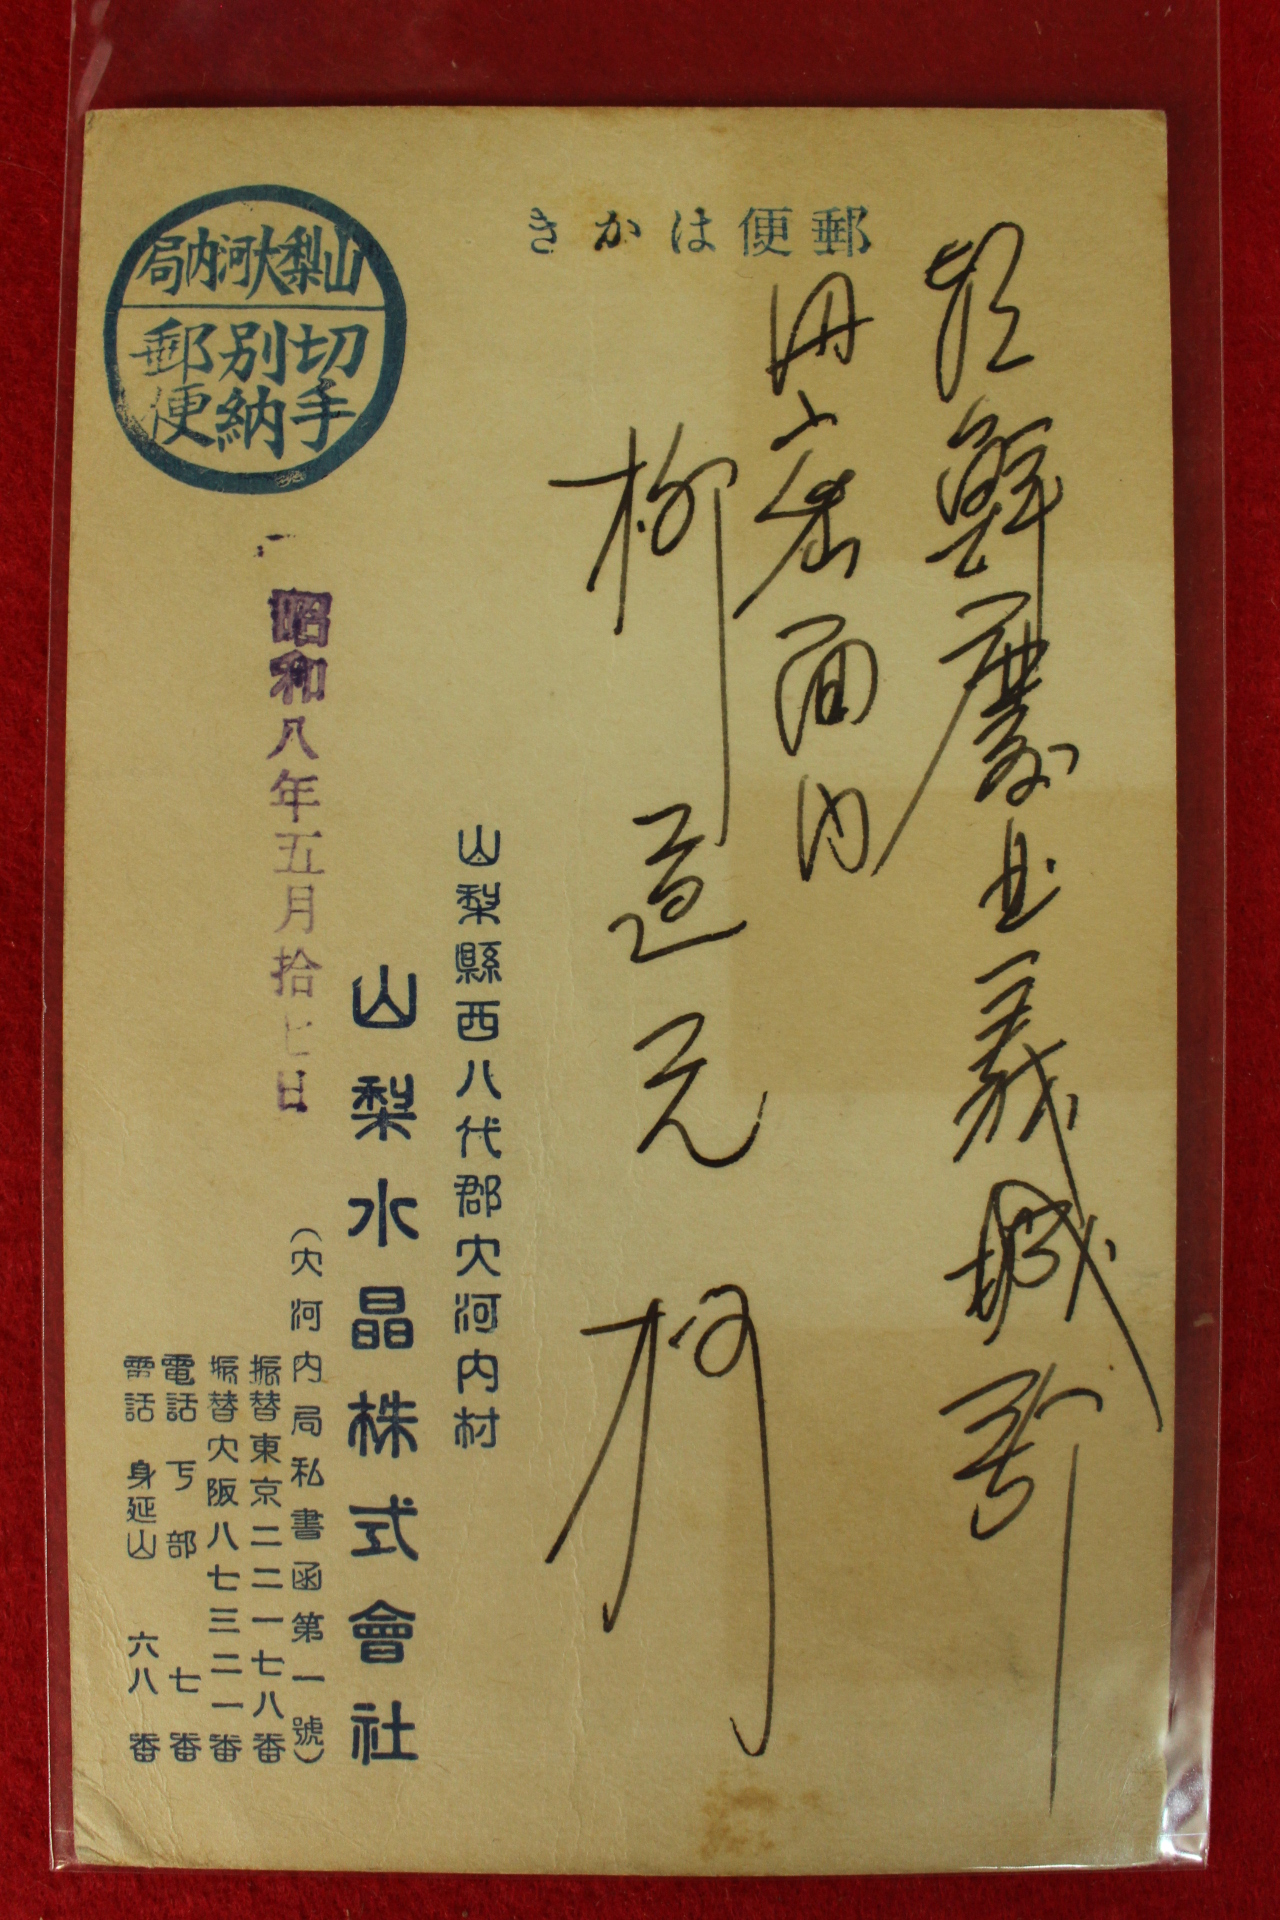 郵便はかき
朝鮮慶北義城郡
丹密面内
柳道元
山梨縣西八代郡大河内村
山梨水晶株式會社
(大河内局私書函第一號)
振替東京二二一七八番
振替大阪八七三二一番
電話下部七番
電話身延山六八番
昭和八年五月拾七日
山梨大河内局
切手
別納
郵便